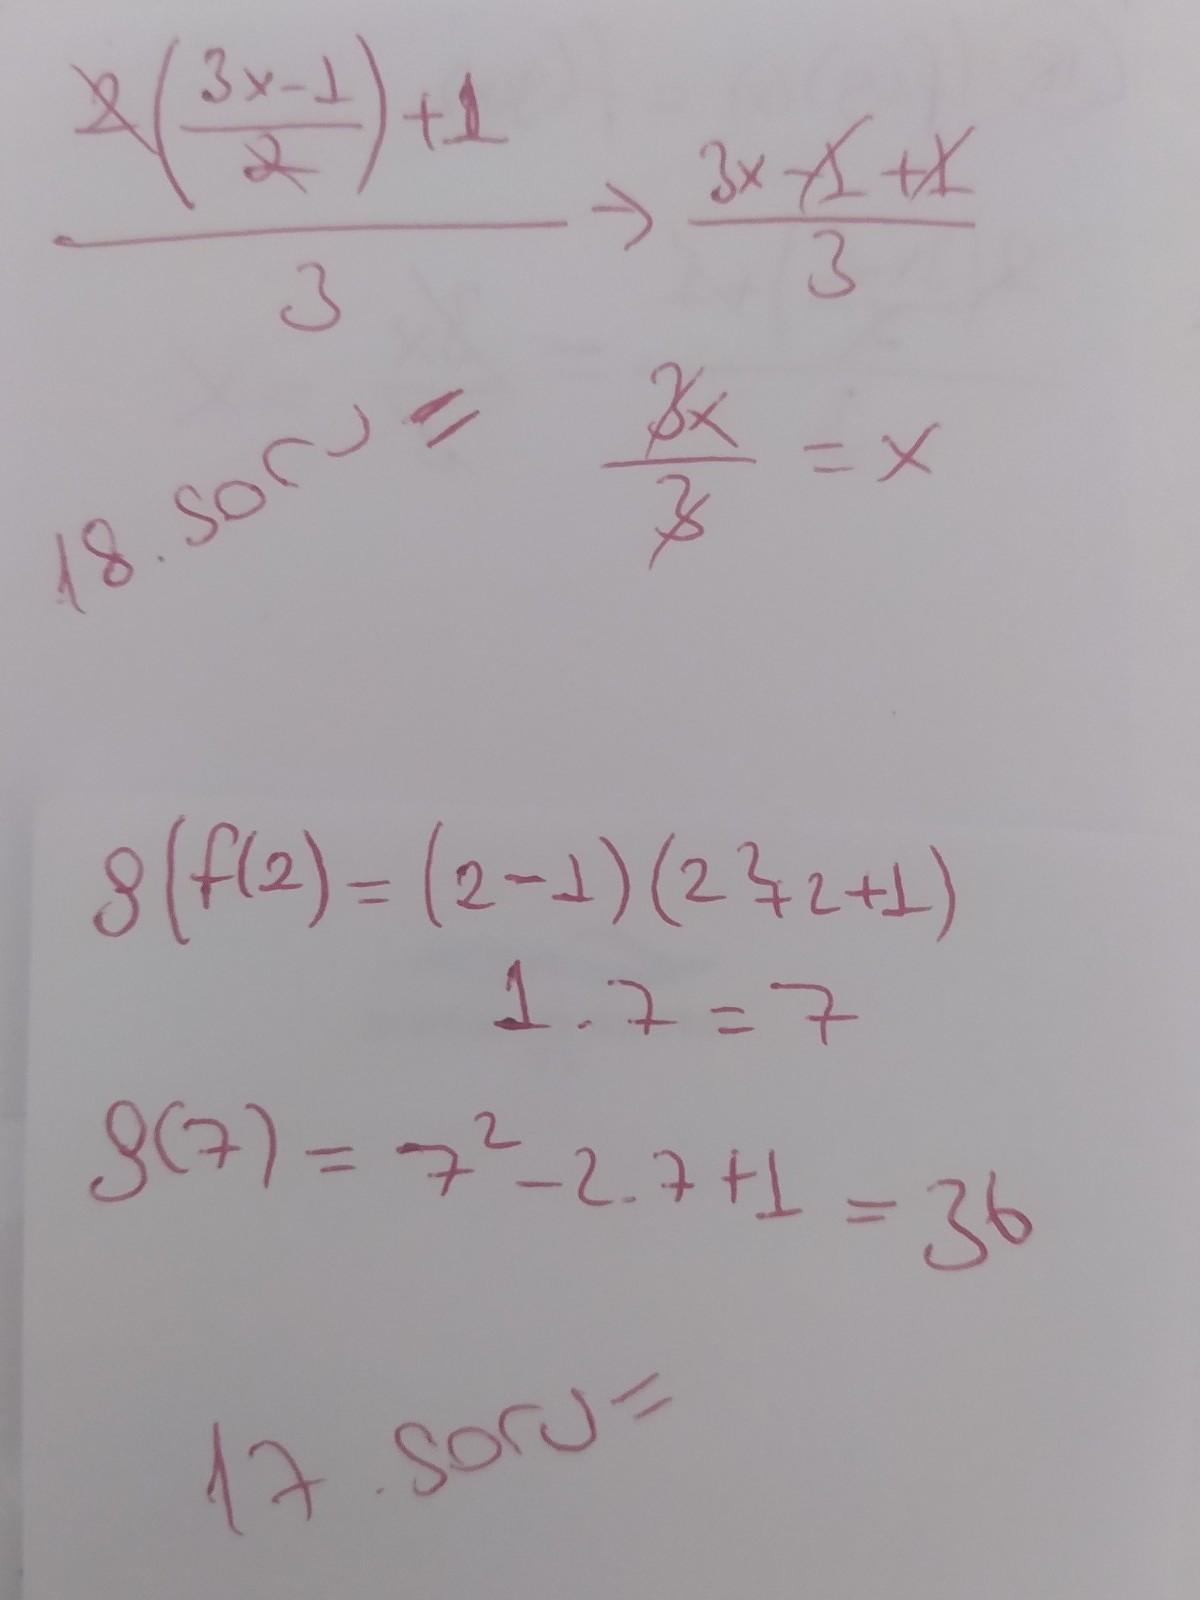 2(3x-1/2)+1 / 3 → 3x-1+1 / 3
18. soru = 3x/3 = x
g(f(2) = (2-1)(2²+2+1)
1.7 = 7
g(7) = 7²-2.7+1 = 36
17. soru =